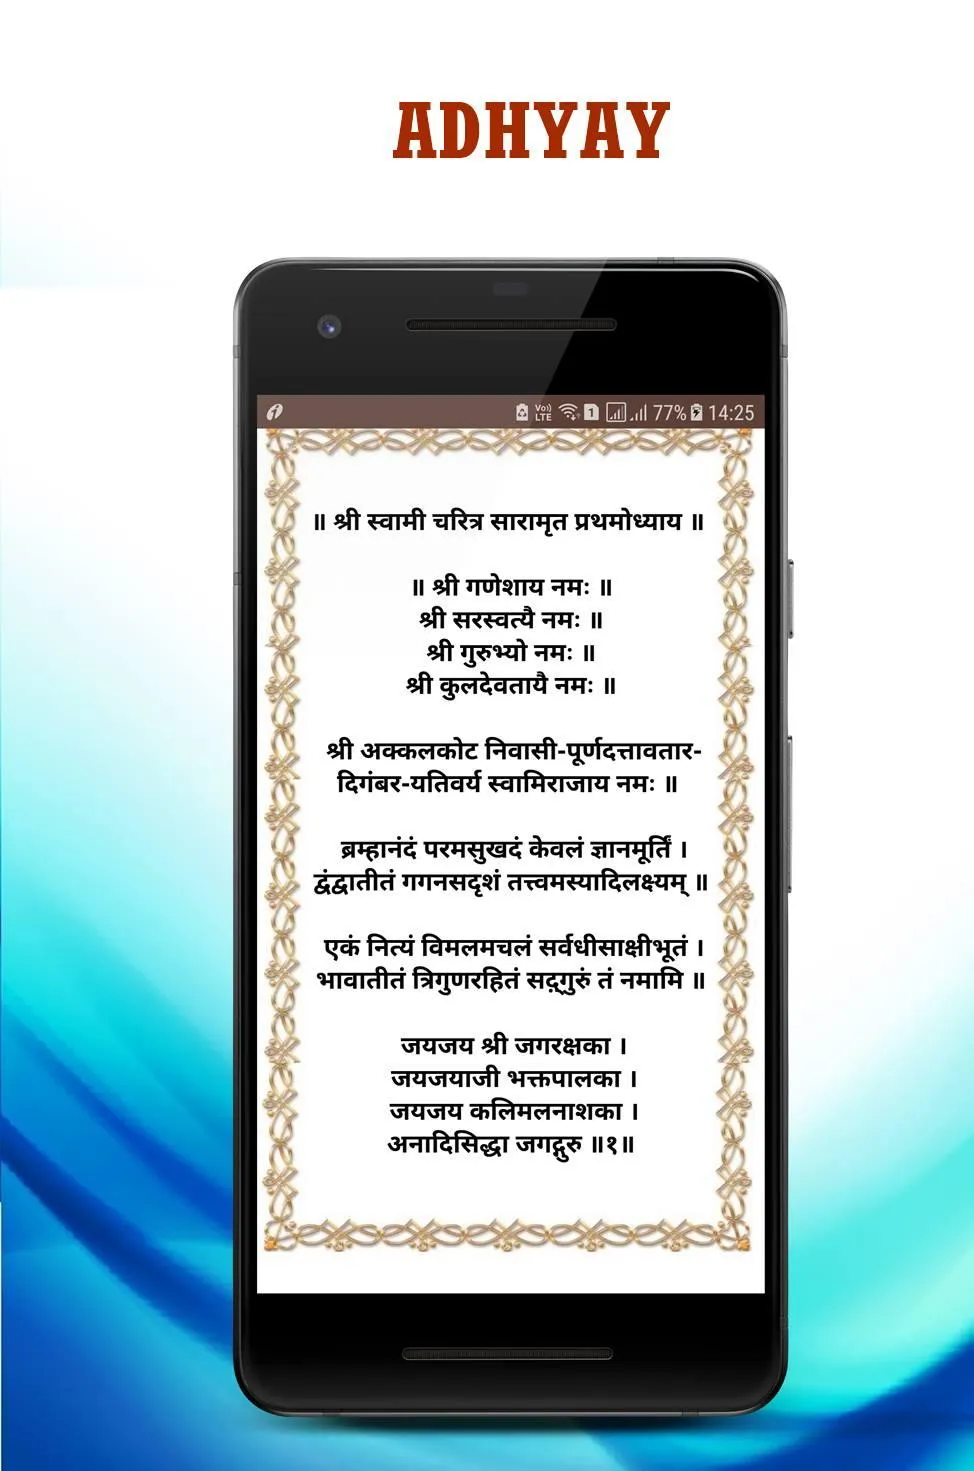 ADHYAY
Vo)) LTE 1 77% 14:25
॥ श्री स्वामी चरित्र सारामृत प्रथमोध्याय ॥
॥ श्री गणेशाय नमः ॥
श्री सरस्वत्यै नमः ॥
श्री गुरुभ्यो नमः ॥
श्री कुलदेवतायै नमः ॥
श्री अक्कलकोट निवासी-पूर्णदत्तावतार-
दिगंबर-यतिवर्य स्वामिराजाय नमः ॥
ब्रम्हानंदं परमसुखदं केवलं ज्ञानमूर्तिं ।
द्वंद्वातीतं गगनसदृशं तत्त्वमस्यादिलक्ष्यम् ॥
एकं नित्यं विमलमचलं सर्वधीसाक्षीभूतं ।
भावातीतं त्रिगुणरहितं सद्‌गुरुं तं नमामि ॥
जयजय श्री जगरक्षका ।
जयजयाजी भक्तपालका ।
जयजय कलिमलनाशका ।
अनादिसिद्धा जगद्गुरु ॥१॥